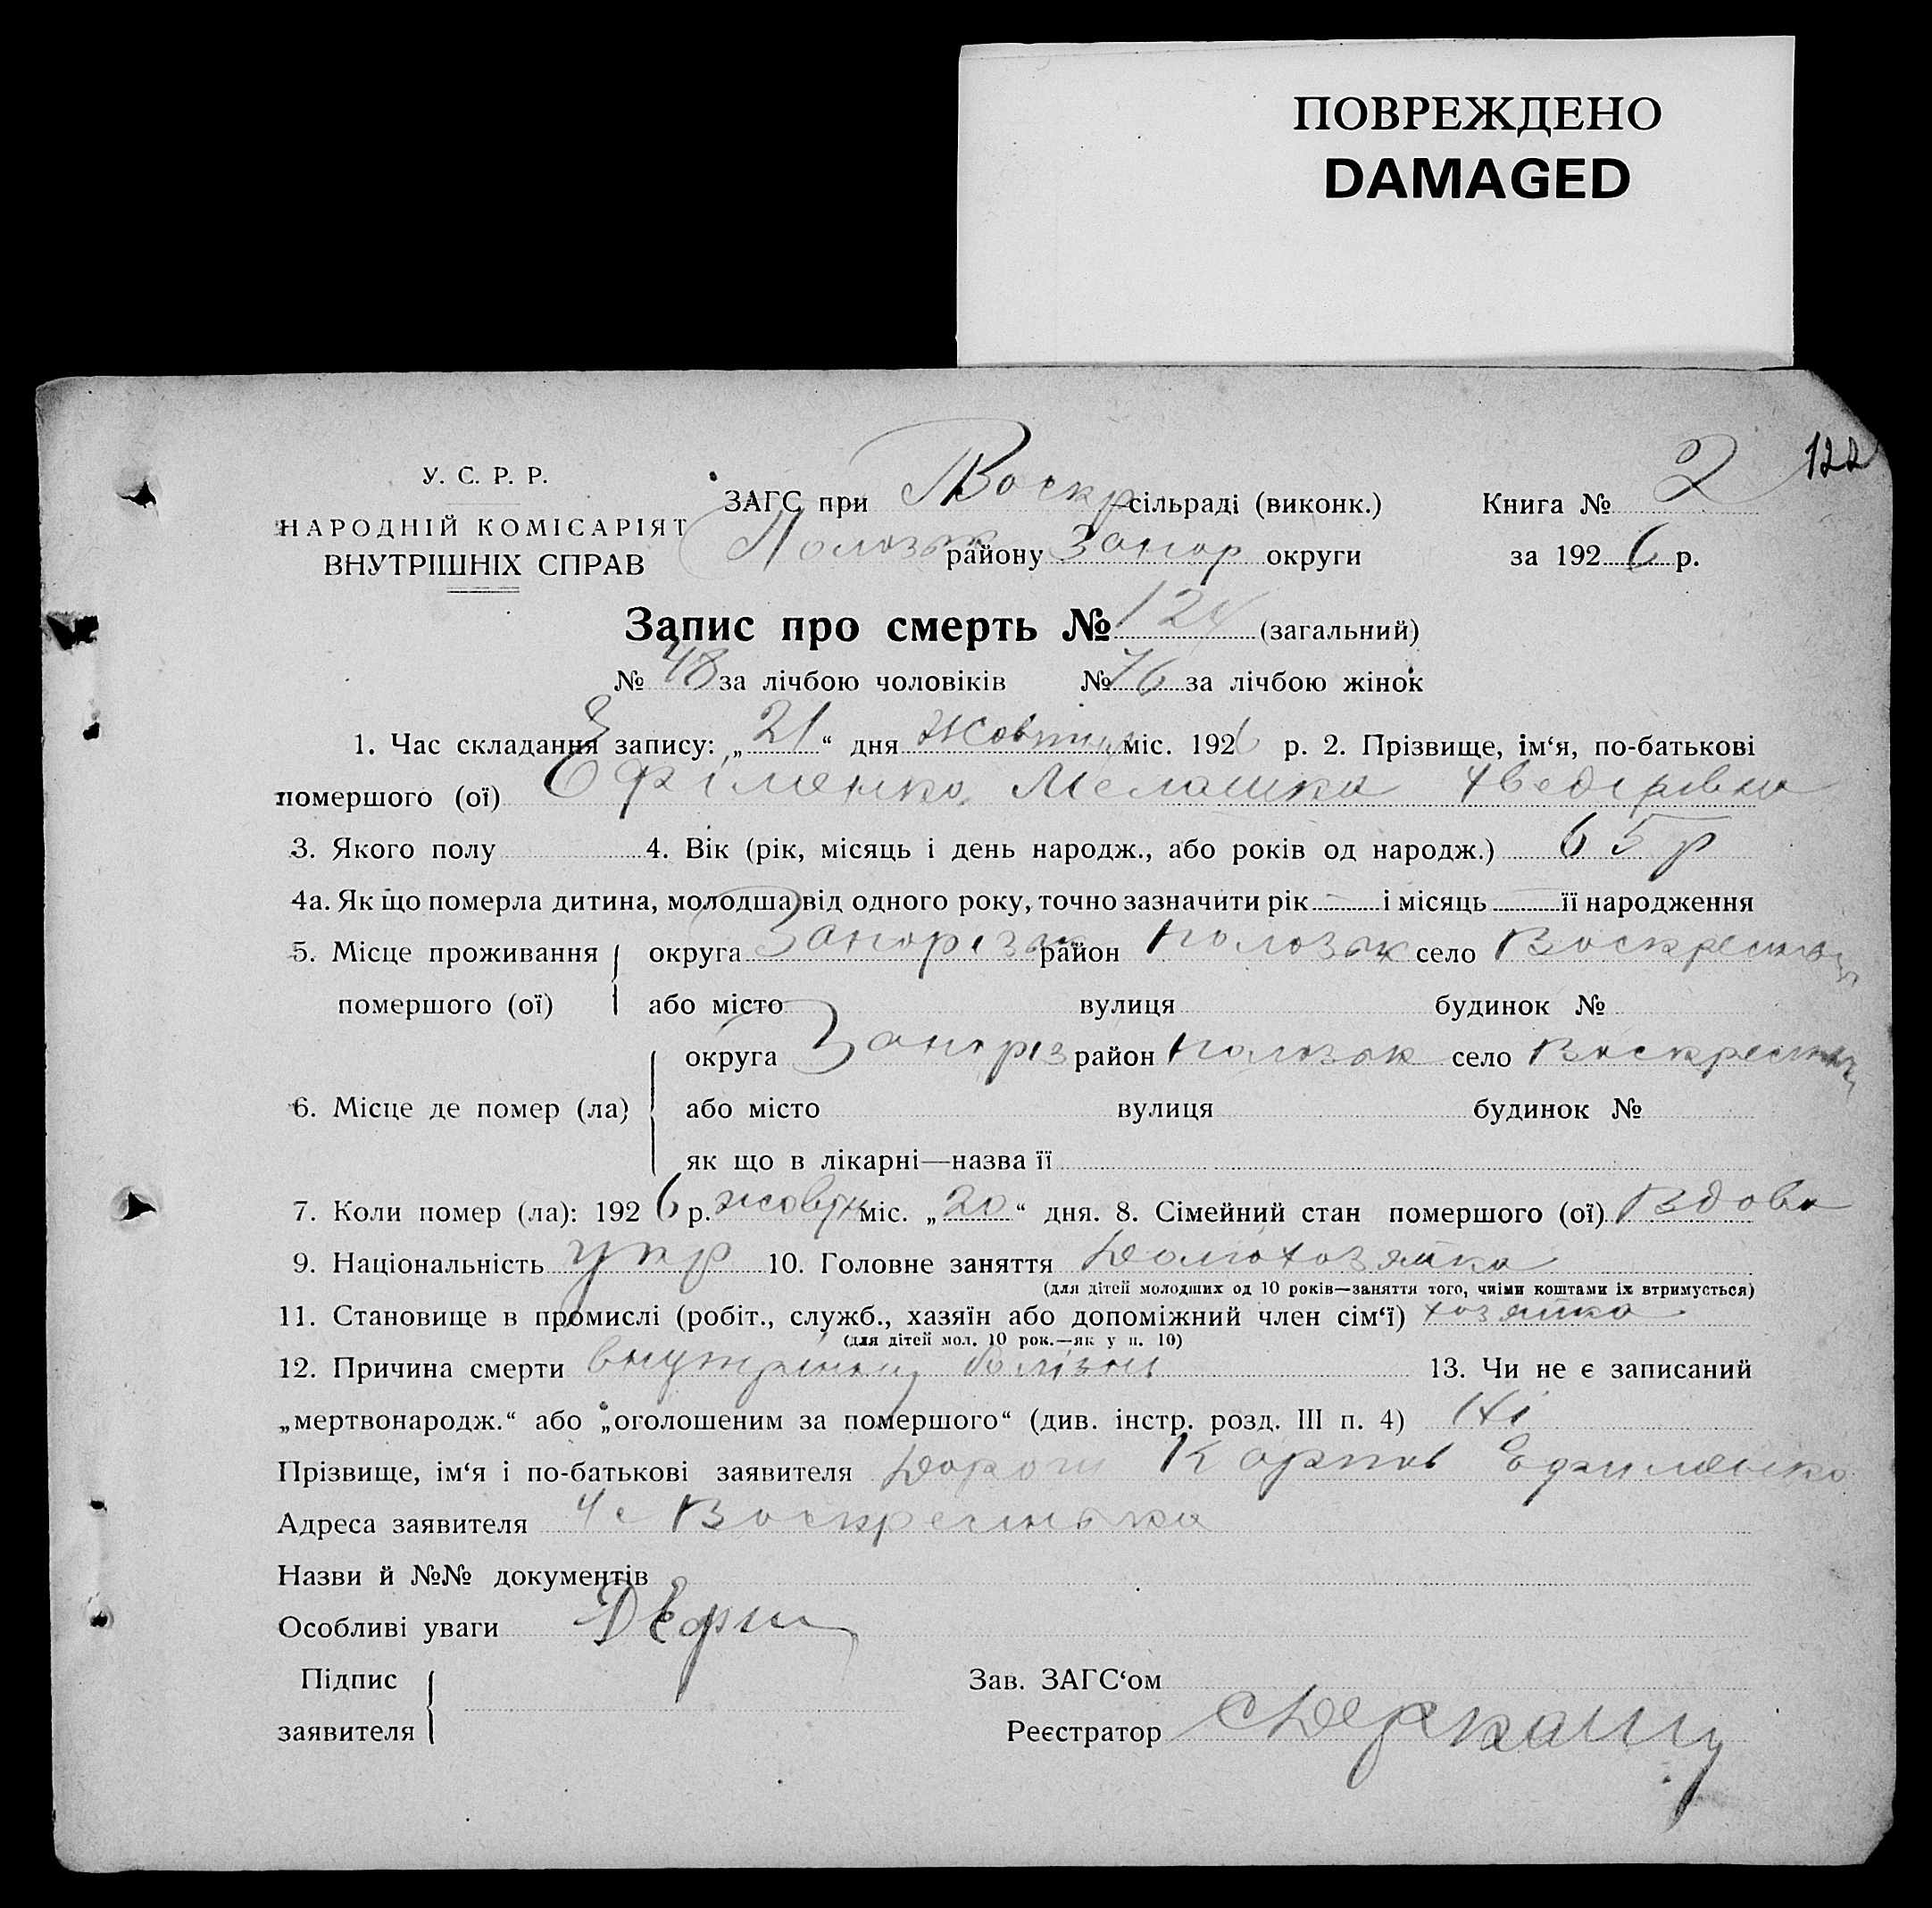 ПОВРЕЖДЕНО
DAMAGED
122
У. С. Р. Р.
НАРОДНІЙ КОМІСАРІЯТ
ВНУТРІШНІХ СПРАВ
ЗАГС при Воскр сільраді (виконк.) Книга № 2
Пологськ району Запор округи за 1926 р.
Запис про смерть № 124 (загальний)
№ 48 за лічбою чоловіків № 76 за лічбою жінок
1. Час складання запису: „21“ дня Жовтня міс. 1926 р. 2. Прізвище, ім‘я, по-батькові
помершого (ої) Ефіменко Мелашка
3. Якого полу 4. Вік (рік, місяць і день народж., або років од народж.) 65 р
4а. Як що померла дитина, молодша від одного року, точно зазначити рік — і місяць — її народження
5. Місце проживання округа район село
помершого (ої) або місто вулиця будинок №
округа Запоріз район село
6. Місце де помер (ла) або місто вулиця будинок №
як що в лікарні—назва її
7. Коли помер (ла): 1926 р. жовтн міс. „20“ дня. 8. Сімейний стан помершого (ої) Вдова
9. Національність укр 10. Головне заняття Домохозяйка
(для дітей молодших од 10 років—заняття того, чиїми коштами їх втримується)
11. Становище в промислі (робіт., служб., хазяїн або допоміжний член сім‘ї) хозяйка
(для дітей мол. 10 рок.—як у п. 10)
12. Причина смерти 13. Чи не є записаний
„мертвонародж.“ або „оголошеним за помершого“ (див. інстр. розд. III п. 4) Ні
Прізвище, ім‘я і по-батькові заявителя Карпов Ефименко
Адреса заявителя с Воскресенька
Назви й №№ документів
Особливі уваги
Підпис Зав. ЗАГС‘ом
заявителя Реєстратор